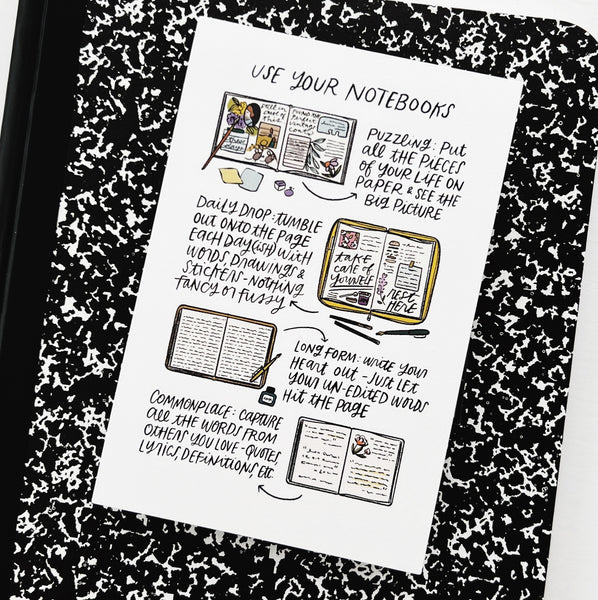 USE YOUR NOTEBOOKS
PUZZLING: PUT
ALL THE PIECES
OF YOUR LIFE ON
PAPER & SEE THE
BIG PICTURE
DAILY DROP: TUMBLE
OUT ONTO THE PAGE
EACH DAY(ISH) WITH
WORDS DRAWINGS &
STICKERS - NOTHING
FANCY OR FUSSY
take
care of
yourself
REST
HERE
LONG FORM: WRITE YOUR
HEART OUT - JUST LET
YOUR UN-EDITED WORDS
HIT THE PAGE
COMMONPLACE: CAPTURE
ALL THE WORDS FROM
OTHERS YOU LOVE - QUOTES
LYRICS, DEFINITIONS, ETC.